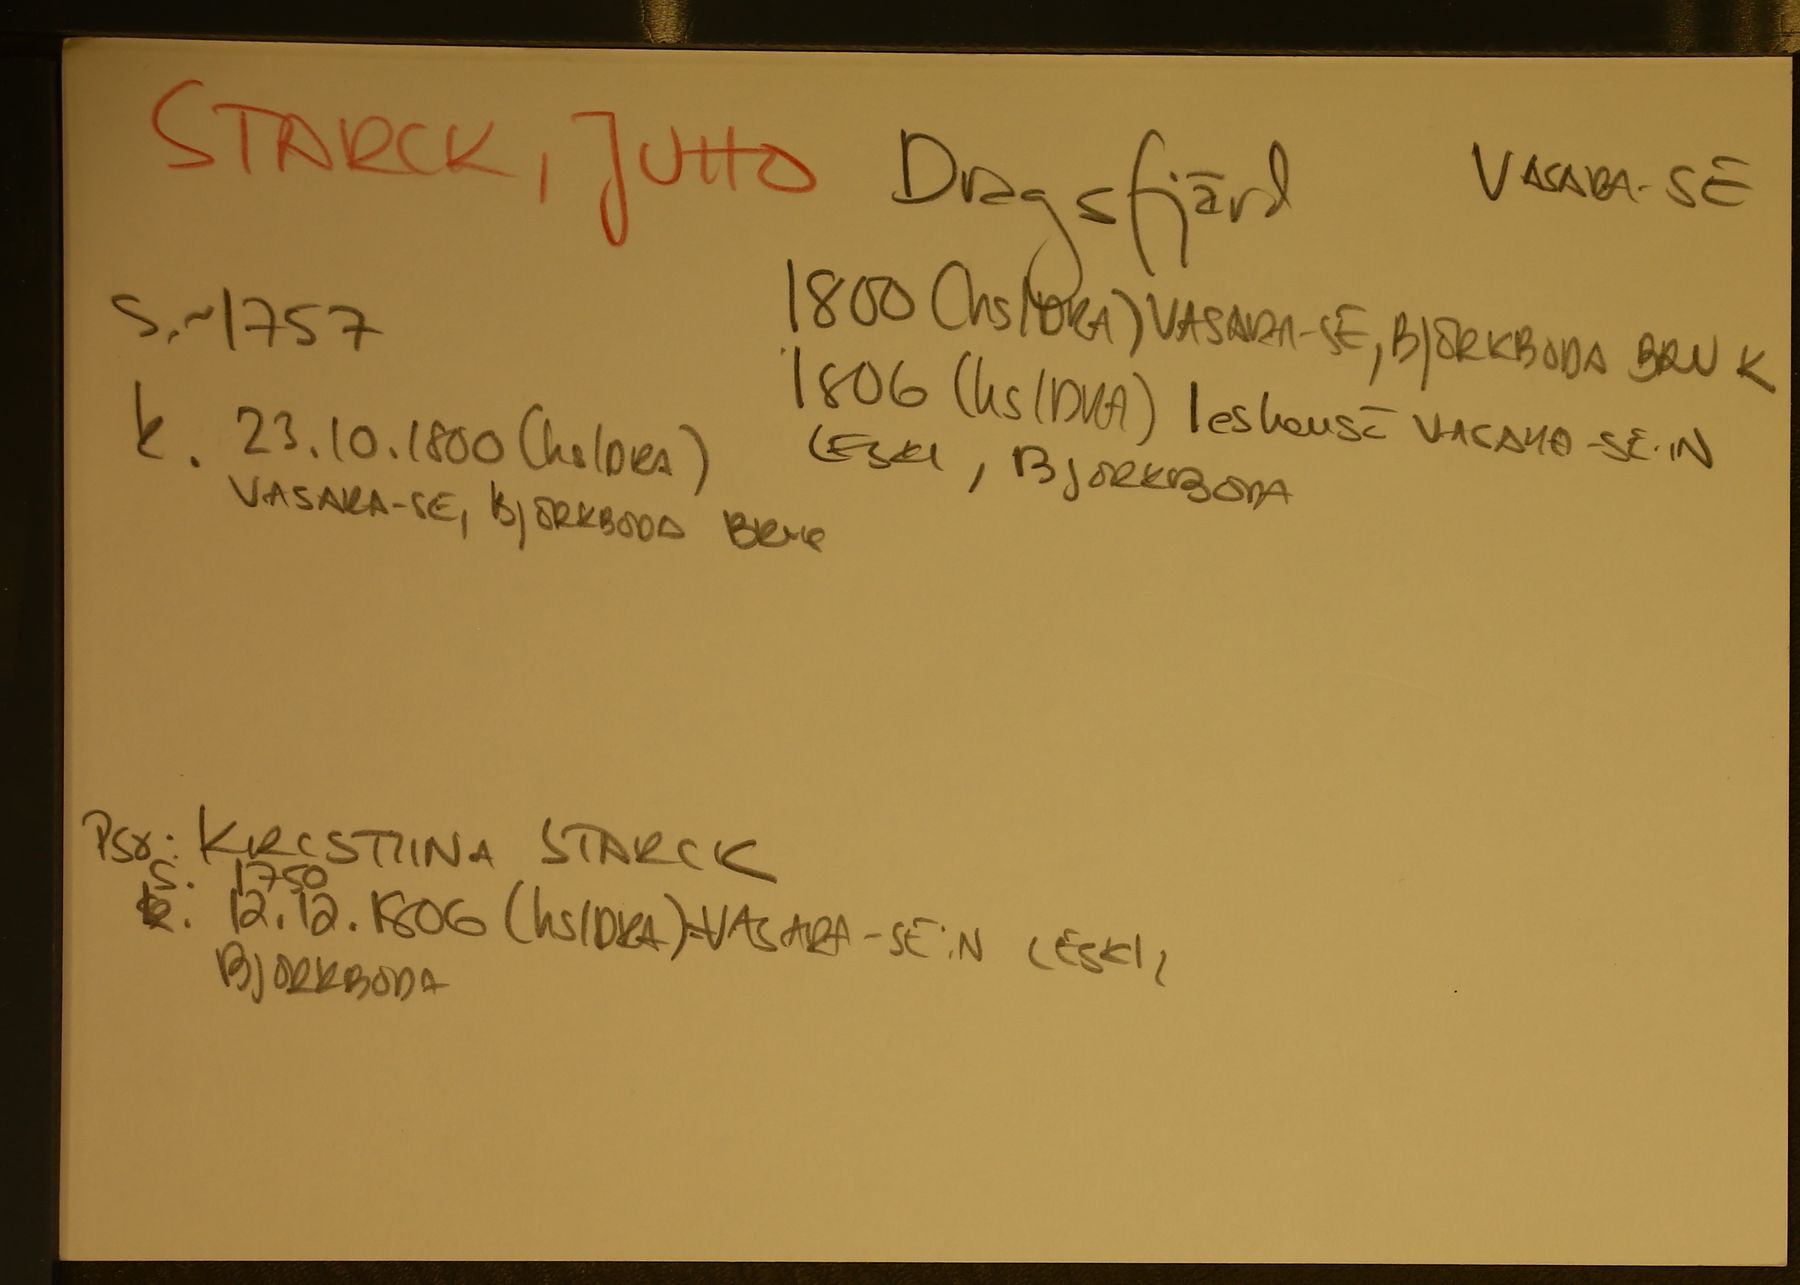 STARCK, JUHO Dragsfjärd VASARA-SE
S. ~1757
1800 (hs/DKA) VASARA-SE, BJÖRKBODA BRUK
1806 (hs/DKA) leskensä VASARA-SE:N
LESKI, BJÖRKBODA
k. 23.10.1800 (hs/DKA)
VASARA-SE, BJÖRKBODA BRUK
Pso: KIRSTIINA STARCK
S. 1750
k. 12.12.1806 (hs/DKA) VASARA-SE:N LESKI,
BJÖRKBODA